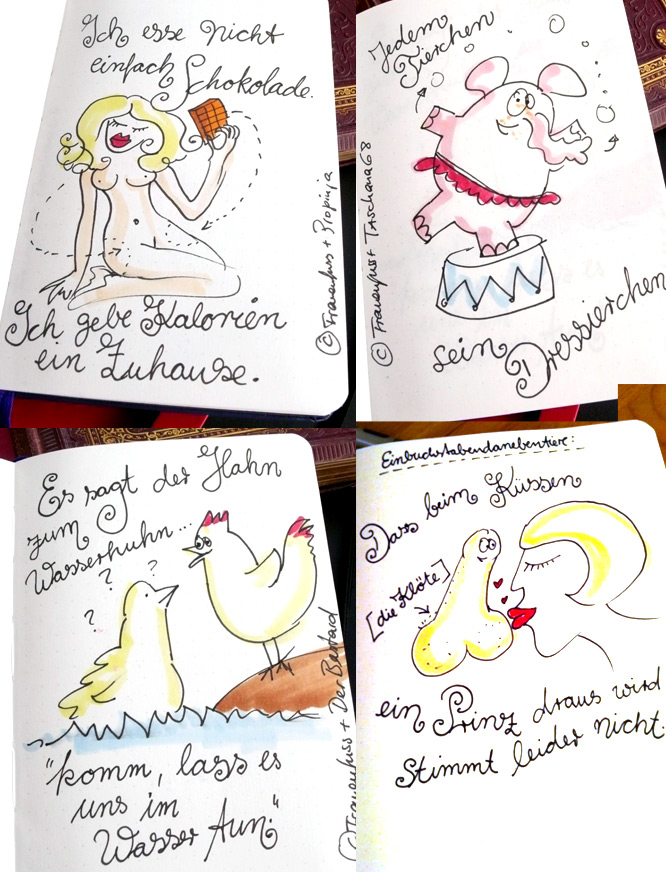 Ich esse nicht
einfach Schokolade.
Ich gebe Kalorien
ein Zuhause.
© Frauenfuss + Propinja
Jedem
Tierchen
sein Dressierchen
© Frauenfuss + Trischana68
Es sagt der Hahn
zum
Wasserhuhn...
? ? ?
"komm, lass es
uns im
Wasser tun."
© Frauenfuss + Der Bastard
Einbuchstabendanebentier:
Dass beim Küssen
[die Klöte]
ein Prinz draus wird
stimmt leider nicht.